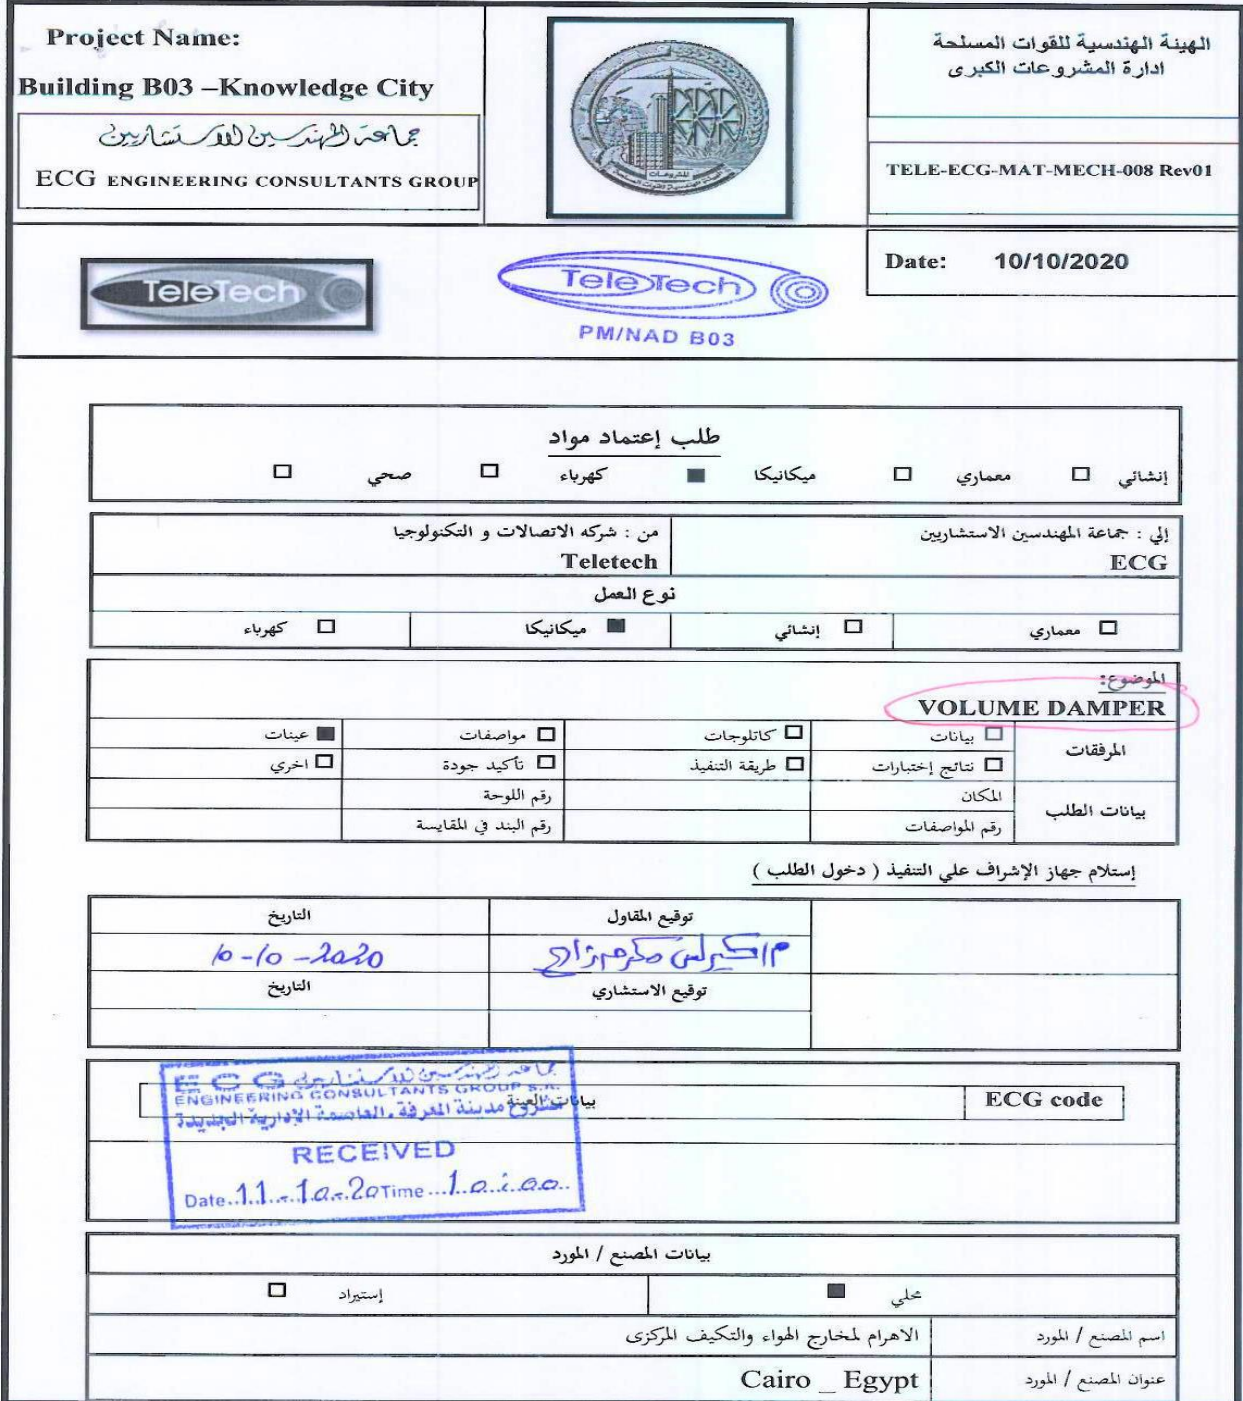 Project Name:
Building B03 –Knowledge City
جماعة المهندسين الاستشاريين
ECG ENGINEERING CONSULTANTS GROUP
الهيئة الهندسية للقوات المسلحة
ادارة المشروعات الكبرى
TELE-ECG-MAT-MECH-008 Rev01
TeleTech
TeleTech
PM/NAD B03
Date: 10/10/2020
طلب إعتماد مواد
إنشائي □ معماري □ ميكانيكا ■ كهرباء □ صحي □
إلي : جماعة المهندسين الاستشاريين
ECG
من : شركه الاتصالات و التكنولوجيا
Teletech
نوع العمل
□ معماري □ إنشائي ■ ميكانيكا □ كهرباء
الموضوع:
VOLUME DAMPER
المرفقات
□ بيانات □ كاتلوجات □ مواصفات ■ عينات
□ نتائج إختبارات □ طريقة التنفيذ □ تأكيد جودة □ اخري
بيانات الطلب
المكان رقم اللوحة
رقم المواصفات رقم البند في المقايسة
إستلام جهاز الإشراف علي التنفيذ ( دخول الطلب )
توقيع المقاول التاريخ
10-10-2020
توقيع الاستشاري التاريخ
ECG code
بيانات العينة
ECG جماعة المهندسين الاستشاريين
ENGINEERING CONSULTANTS GROUP S.A.
مشروع مدينة المعرفة ـ العاصمة الإدارية الجديدة
RECEIVED
Date..11..-10.-.20 Time ...10.:.00..
بيانات المصنع / المورد
محلي ■ إستيراد □
اسم المصنع / المورد الاهرام لمخارج الهواء والتكيف المركزى
عنوان المصنع / المورد Cairo _ Egypt